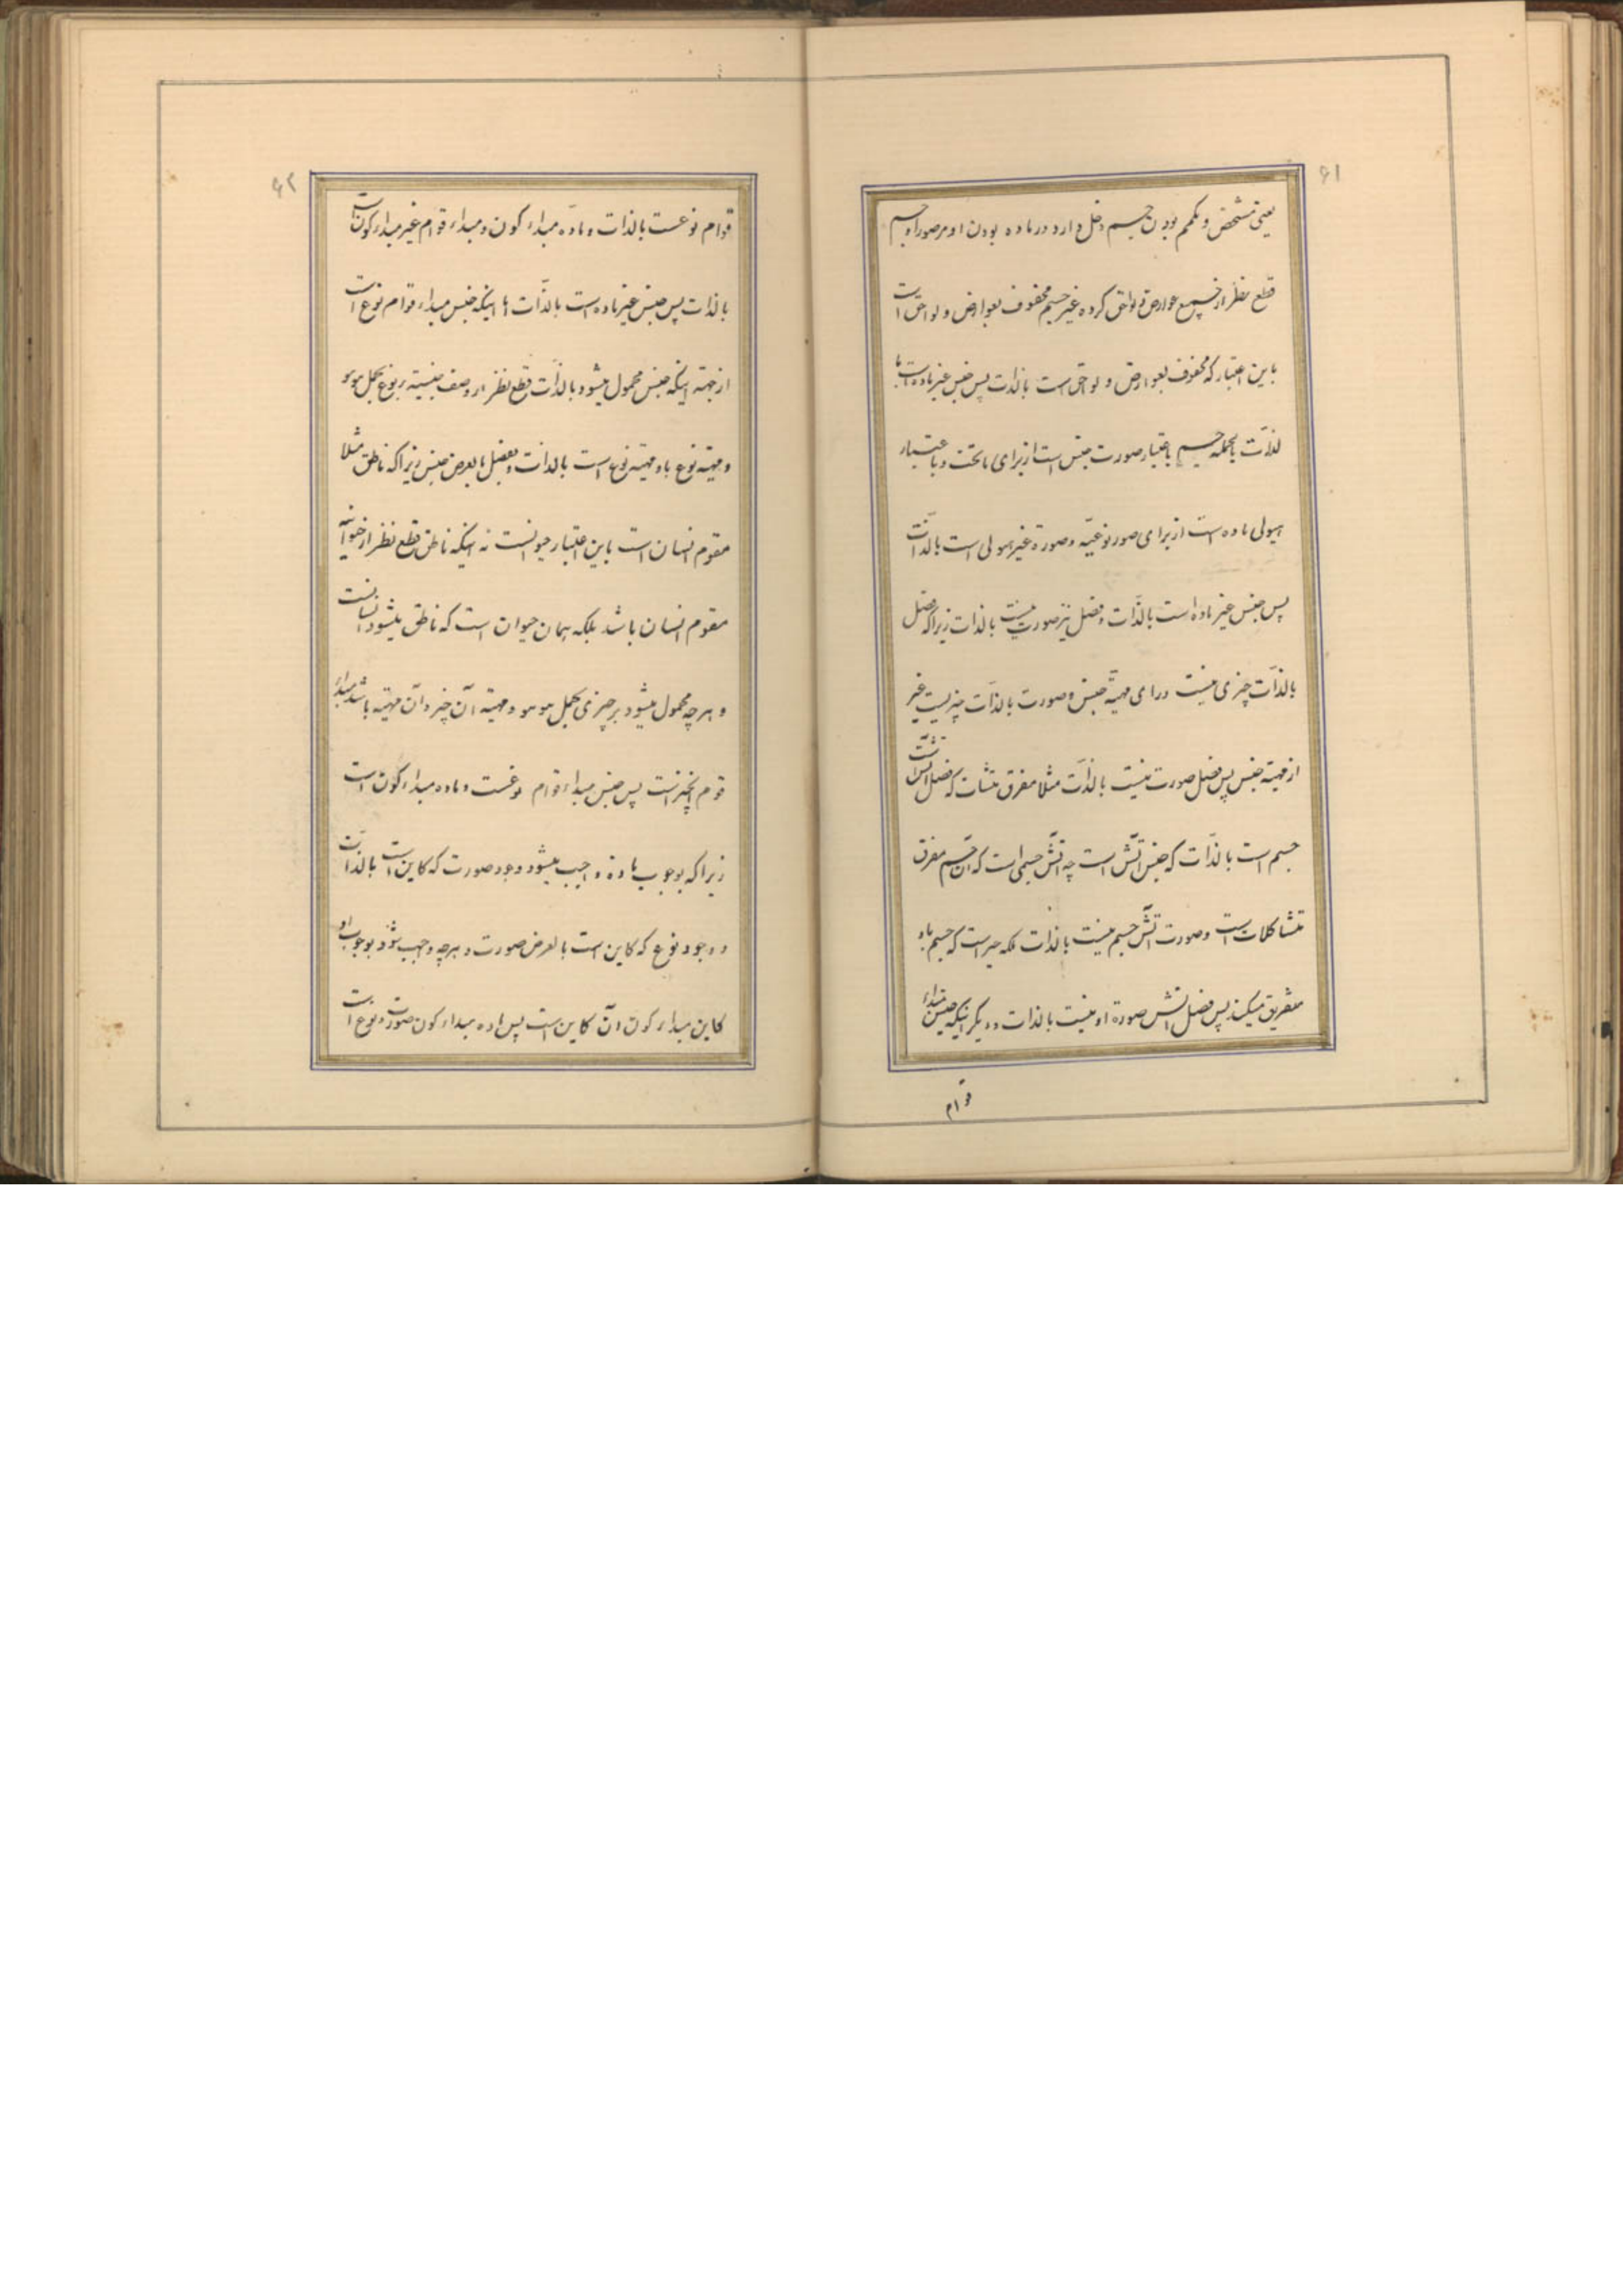 ۶۱
یعنی مشخص و مکمم بودن جسم دخل دارد در ماده بودن او مر صور را و جسم
قطع نظر از جمیع عوارض و لواحق کرده غیر جسم محفوف بعوارض و لواحق است
باین اعتبار که محفوف بعوارض و لواحق است بالذات پس جنس غیر ماده است با
لذات بالجمله جسم باعتبار صورت جنس است از برای ماتحت و باعتبار
هیولی ماده است از برای صور نوعیّه و صورة غیر هیولی است بالذات
پس جنس غیر ماده است بالذّات و فصل نیز صورت نیست بالذات زیرا که فصل
بالذّات چیزی نیست ورای مهیّة جنس و صورت بالذّات چیزیست غیر
از مهیّة جنس پس فصل صورت نیست بالذّات مثلا مفرق متشاکلات که فصل آتش است
جسم است بالذّات که جنس آتش است چه آتش جسمی است که آن جسم مفرق
متشاکلات است و صورت آتش جسم نیست بالذات بلکه چیزیست که جسم باو
تفریق میکند پس فصل آتش صورة او نیست بالذات و دیگر اینکه جنس مبداء
قوام
۶۲
قوام نوعست بالذات و مادّه مبداء کون و مبداء قوام غیر مبداء کون است
بالذات پس جنس غیر ماده است بالذّات اما اینکه جنس مبداء قوام نوع است
از جهة اینکه جنس محمول میشود بالذّات قطع نظر از وصف جنسیّة بر نوع بحمل هو هو
و مهیّة نوع باو مهیّة نوع است بالذات و فصل بالعرض جنس زیرا که ناطق مثلا
مقوم انسان است باین اعتبار حیوانست نه اینکه ناطق قطع نظر از حیوانیّة
مقوم انسان باشد بلکه همان حیوان است که ناطق میشود انسانست
و هر چه محمول میشود بر چیزی بحمل هو هو و مهیّة آن چیز و آن مهیّة باشد مبداء
قوام آنچیز است پس جنس مبداء قوام نوعست و ماده مبداء کون است
زیرا که بوجوب ماده واجب میشود وجود صورت که کاین است بالذّات
و وجود نوع که کاین است بالعرض صورت و هر چه واجب شود بوجوب او
کاین مبداء کون آن کاین است پس ماده مبداء کون صورت و نوع است